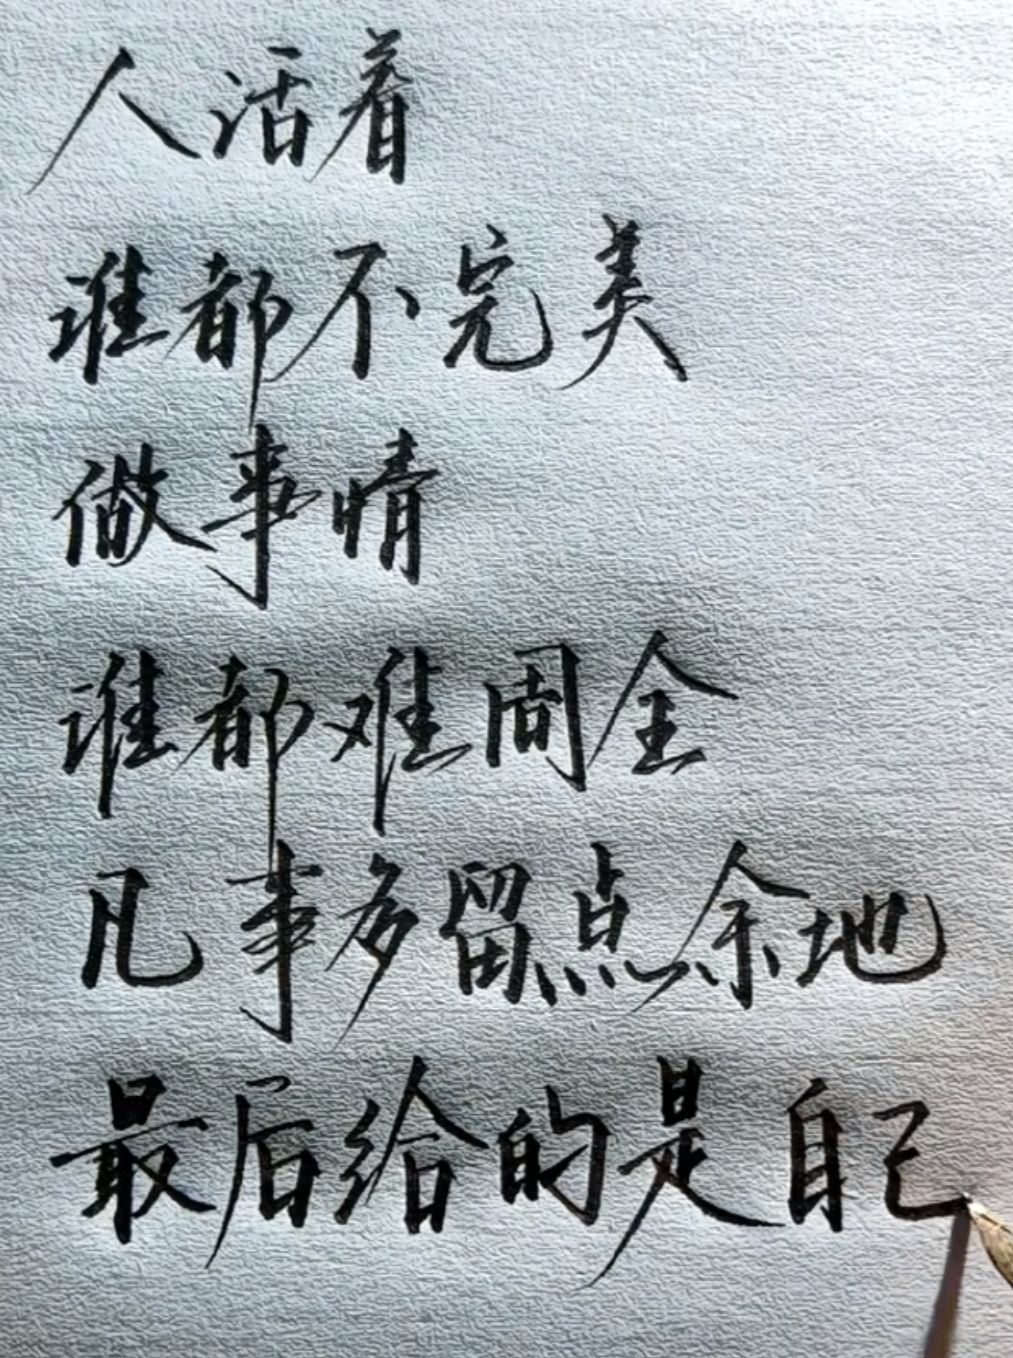 人活着
谁都不完美
做事情
谁都难周全
凡事多留点余地
最后给的是自己